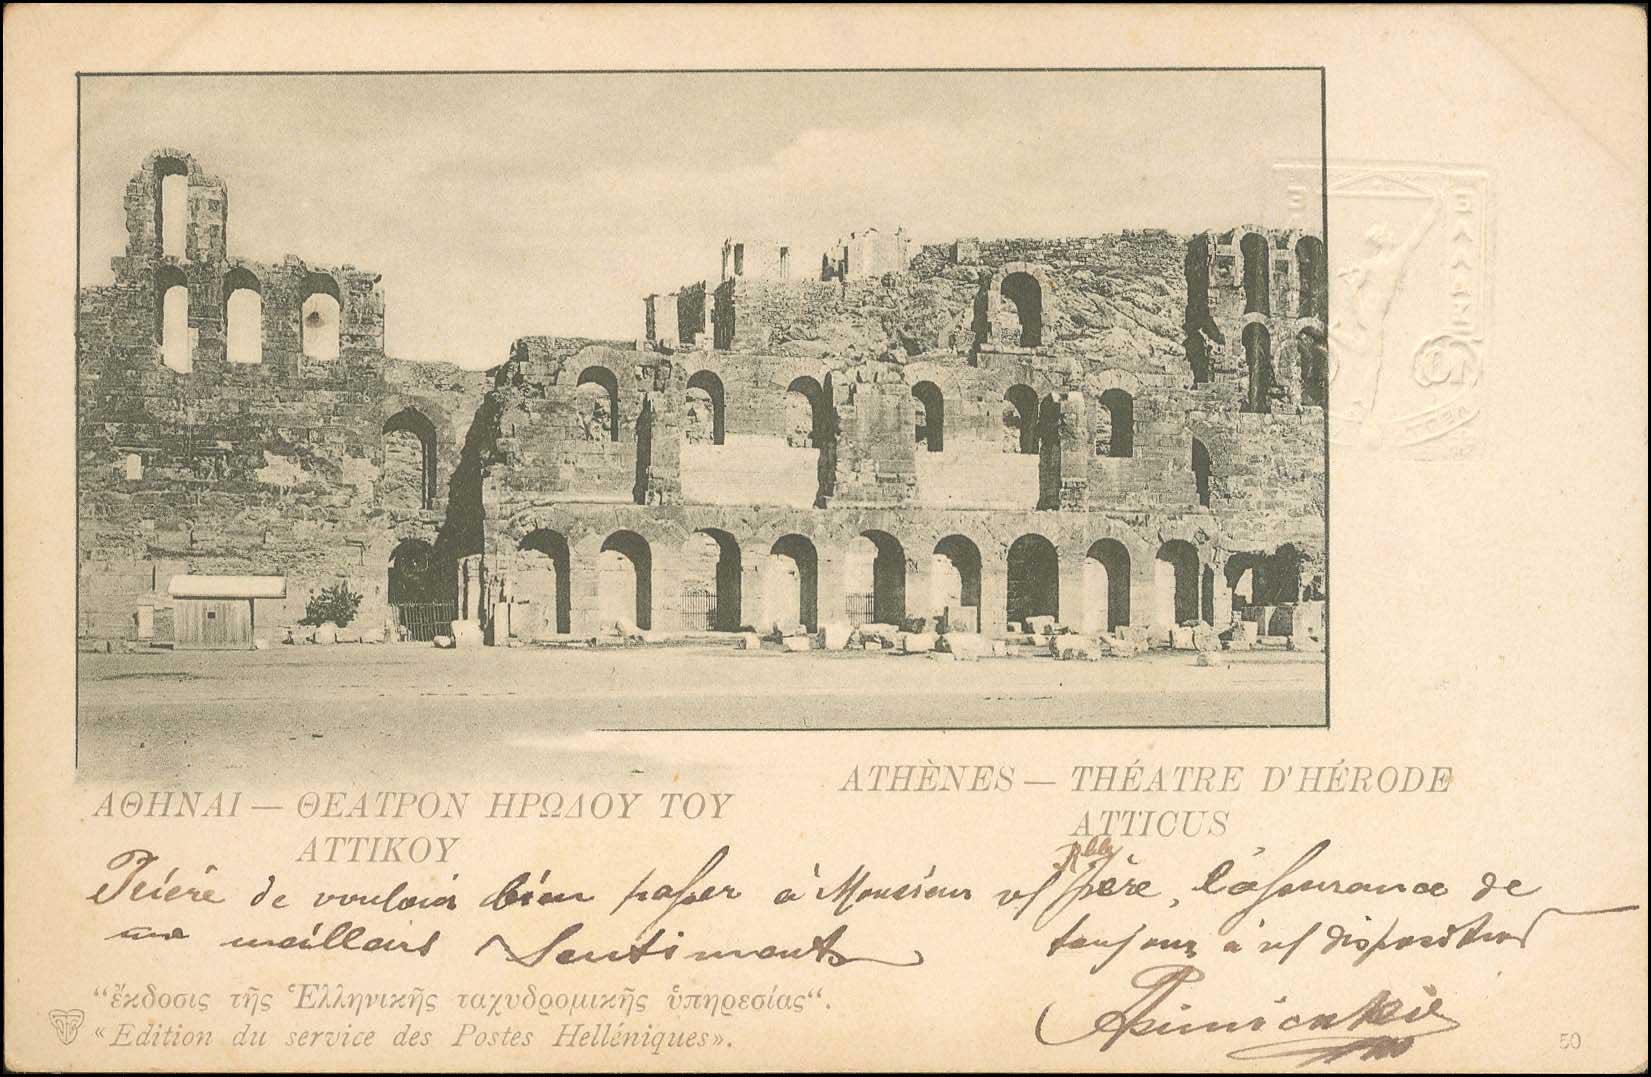 ΑΘΗΝΑΙ — ΘΕΑΤΡΟΝ ΗΡΩΔΟΥ ΤΟΥ
ΑΤΤΙΚΟΥ
ATHÈNES — THÉATRE D'HÉRODE
ATTICUS
Prière de vouloir bien passer à Monsieur père, l'assurance de
meilleurs Sentiments
toujours à disposition
"ἔκδοσις τῆς Ἑλληνικῆς ταχυδρομικῆς ὑπηρεσίας".
«Edition du service des Postes Helléniques».
50